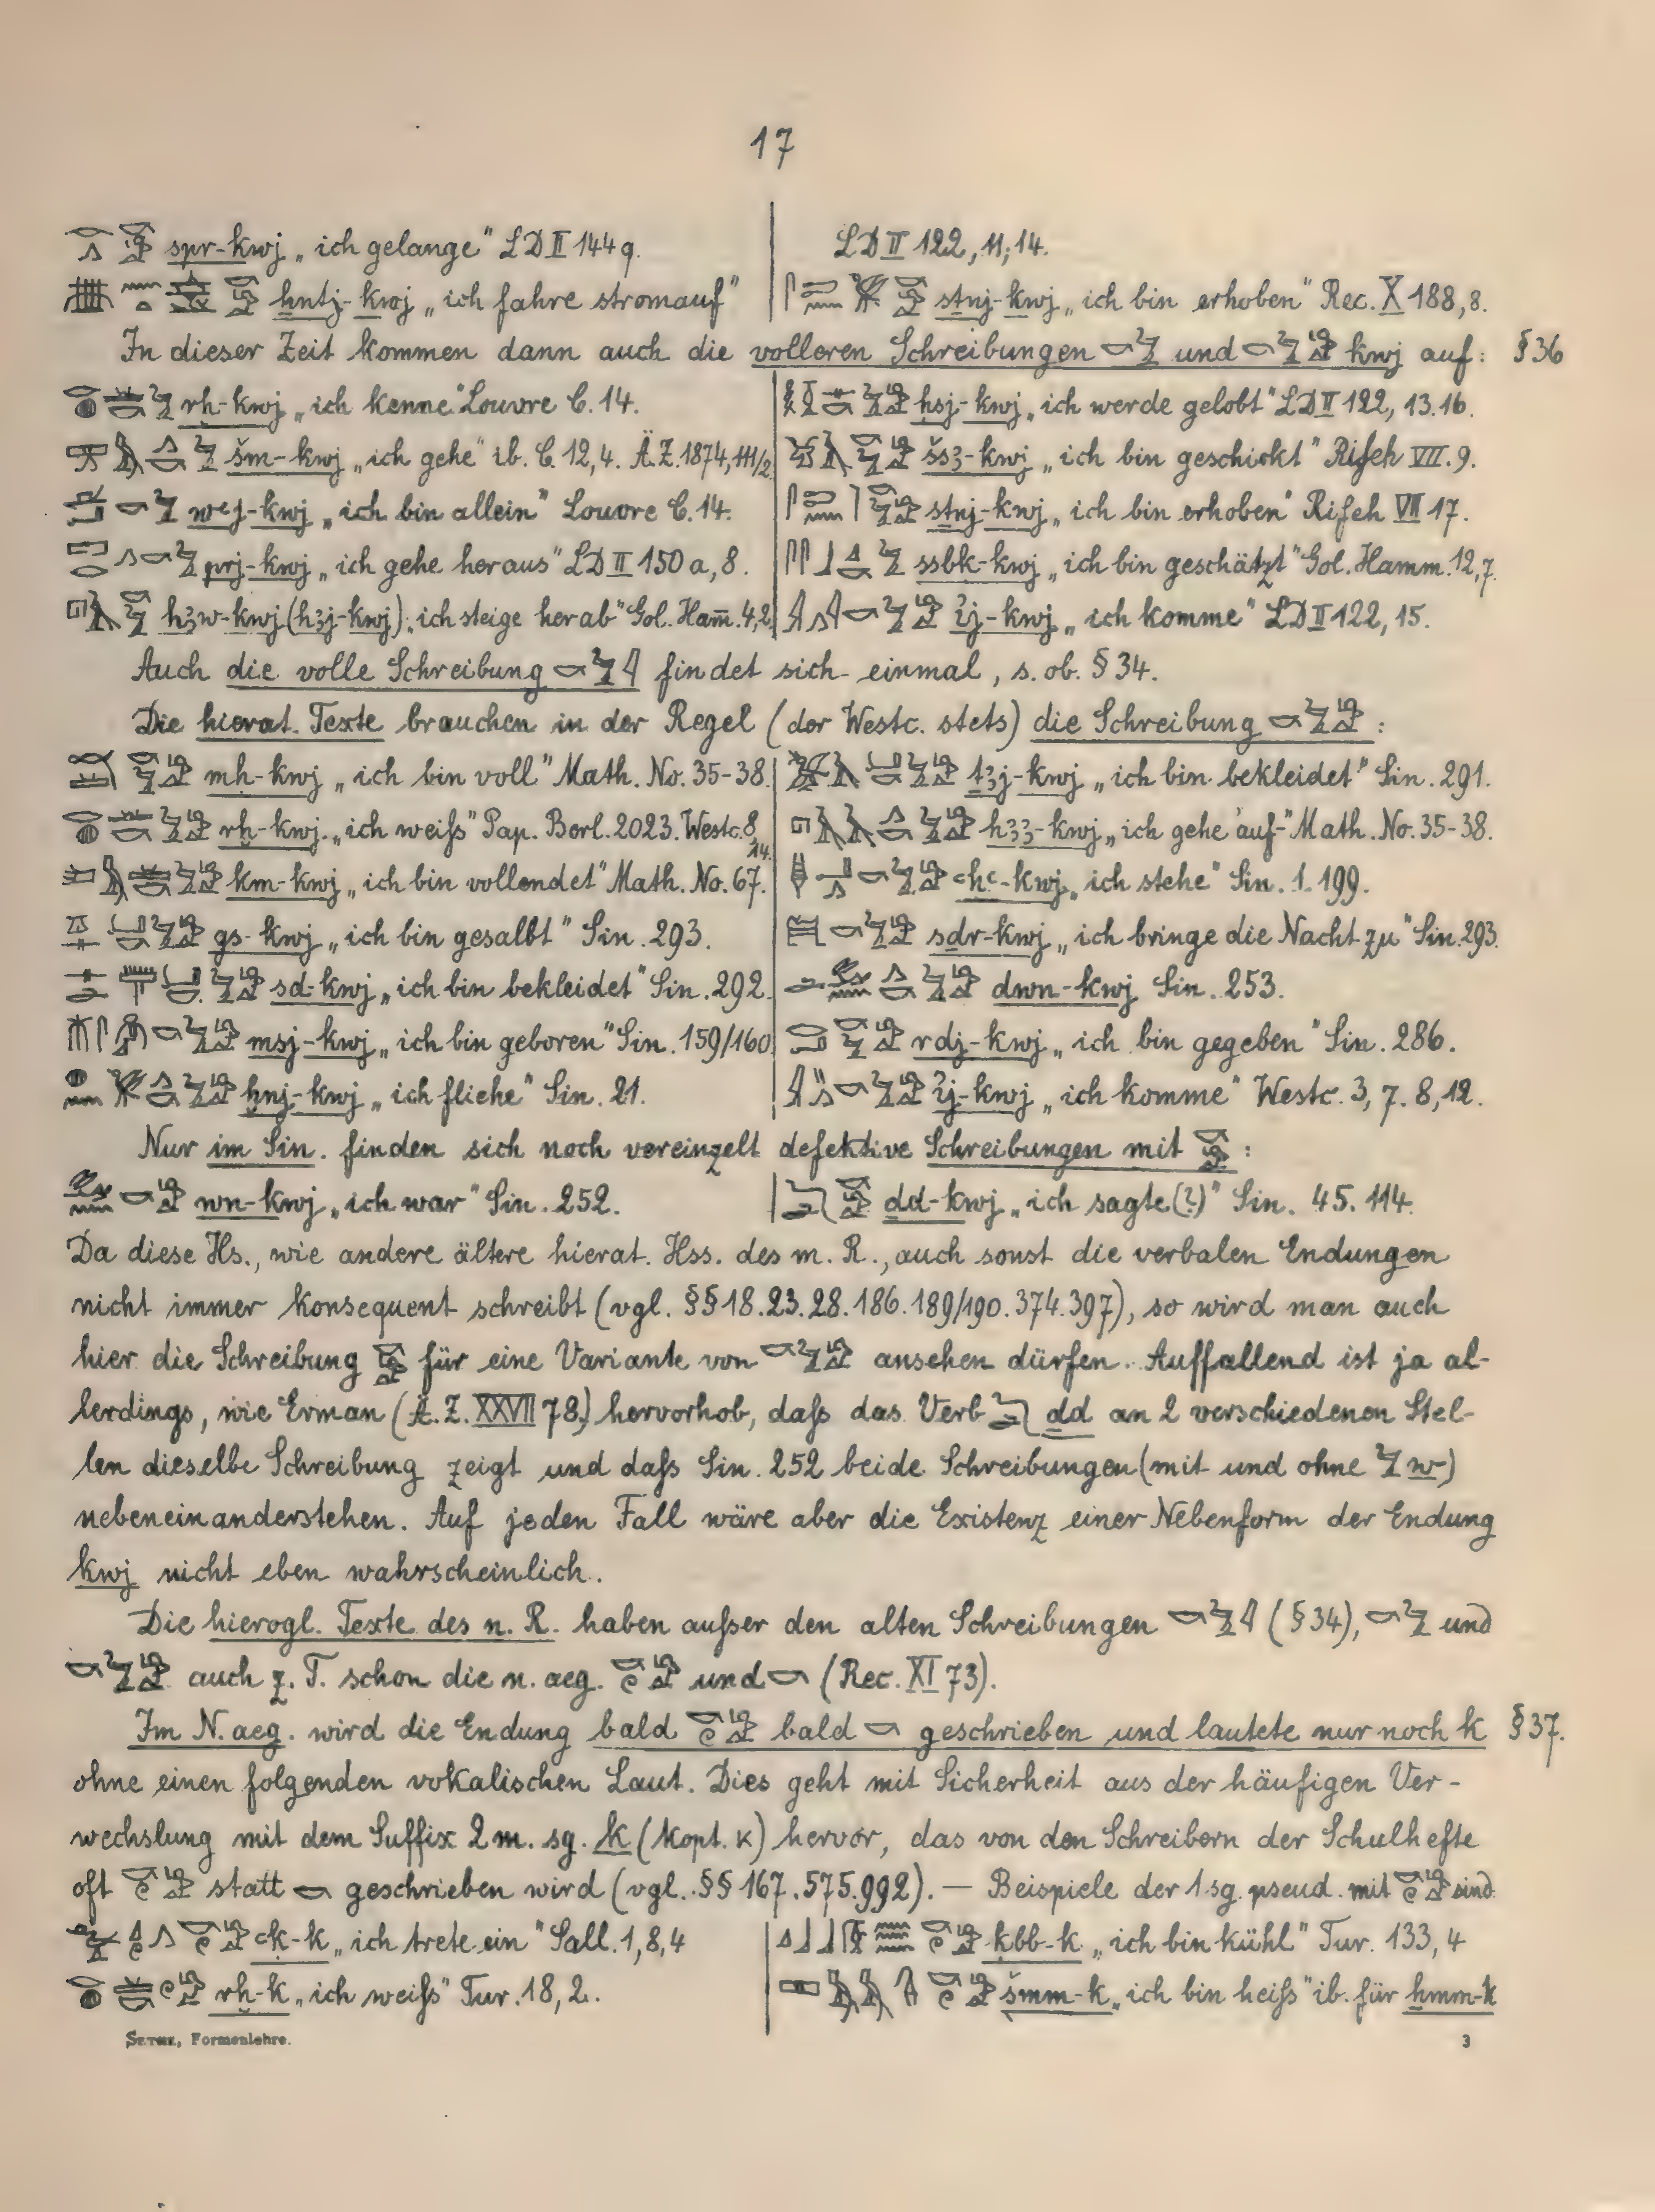 17
spr-kwj „ich gelange“ LD II 144 q.
ḫntj-kwj „ich fahre stromauf“
LD II 122, 11; 14.
stnj-kwj „ich bin erhoben“ Rec. X 188, 8.
In dieser Zeit kommen dann auch die volleren Schreibungen und kwj auf: § 36
rḫ-kwj „ich kenne“ Louvre C. 14.
šm-kwj „ich gehe“ ib. C. 12, 4. Ä.Z. 1874, 111/2
wꜥj-kwj „ich bin allein“ Louvre C. 14.
prj-kwj „ich gehe heraus“ LD II 150 a, 8.
hꜣw-kwj (hꜣj-kwj) „ich steige herab“ Gol. Ham̄. 4, 2
ḥsj-kwj „ich werde gelobt“ LD II 122, 13. 16.
šsꜣ-kwj „ich bin geschickt“ Rifeh VII. 9.
stnj-kwj „ich bin erhoben“ Rifeh VII 17.
ssbk-kwj „ich bin geschätzt“ Gol. Hamm. 12, 7.
ij-kwj „ich komme“ LD II 122, 15.
Auch die volle Schreibung findet sich einmal, s. ob. § 34.
Die hierat. Texte brauchen in der Regel (der Westc. stets) die Schreibung :
mḥ-kwj „ich bin voll“ Math. No. 35-38.
rḫ-kwj „ich weiß“ Pap. Berl. 2023. Westc. 8, 14.
km-kwj „ich bin vollendet“ Math. No. 67.
gs-kwj „ich bin gesalbt“ Sin. 293.
sd-kwj „ich bin bekleidet“ Sin. 292.
msj-kwj „ich bin geboren“ Sin. 159/160
ḫnj-kwj „ich fliehe“ Sin. 21.
ṯꜣj-kwj „ich bin bekleidet“ Sin. 291.
hꜣꜣ-kwj „ich gehe auf“ Math. No. 35-38.
ꜥḥꜥ-kwj „ich stehe“ Sin. 1. 199.
sḏr-kwj „ich bringe die Nacht zu“ Sin. 293.
dwn-kwj Sin. 253.
rdj-kwj „ich bin gegeben“ Sin. 286.
ij-kwj „ich komme“ Westc. 3, 7. 8, 12.
Nur im Sin. finden sich noch vereinzelt defektive Schreibungen mit :
wn-kwj „ich war“ Sin. 252.
ḏd-kwj „ich sagte (?)“ Sin. 45. 114.
Da diese Hs., wie andere ältere hierat. Hss. des m. R., auch sonst die verbalen Endungen
nicht immer konsequent schreibt (vgl. §§ 18. 23. 28. 186. 189/190. 374. 397), so wird man auch
hier die Schreibung für eine Variante von ansehen dürfen. Auffallend ist ja al-
lerdings, wie Erman (Ä.Z. XXVII 78) hervorhob, daß das Verb ḏd an 2 verschiedenen Stel-
len dieselbe Schreibung zeigt und daß Sin. 252 beide Schreibungen (mit und ohne w)
nebeneinanderstehen. Auf jeden Fall wäre aber die Existenz einer Nebenform der Endung
kwj nicht eben wahrscheinlich.
Die hierogl. Texte des n. R. haben außer den alten Schreibungen (§ 34), und
auch z. T. schon die n. aeg. und (Rec. XI 73).
Im N. aeg. wird die Endung bald bald geschrieben und lautete nur noch k § 37.
ohne einen folgenden vokalischen Laut. Dies geht mit Sicherheit aus der häufigen Ver-
wechslung mit dem Suffix 2 m. sg. k (kopt. ⲕ) hervor, das von den Schreibern der Schulhefte
oft statt geschrieben wird (vgl. §§ 167. 575. 992). — Beispiele der 1 sg. pseud. mit sind
ꜥḳ-k „ich trete ein“ Sall. 1, 8, 4
rḫ-k „ich weiß“ Tur. 18, 2.
ḳbb-k „ich bin kühl“ Tur. 133, 4
šmm-k „ich bin heiß“ ib. für ḫmm-k
Sethe, Formenlehre.
3